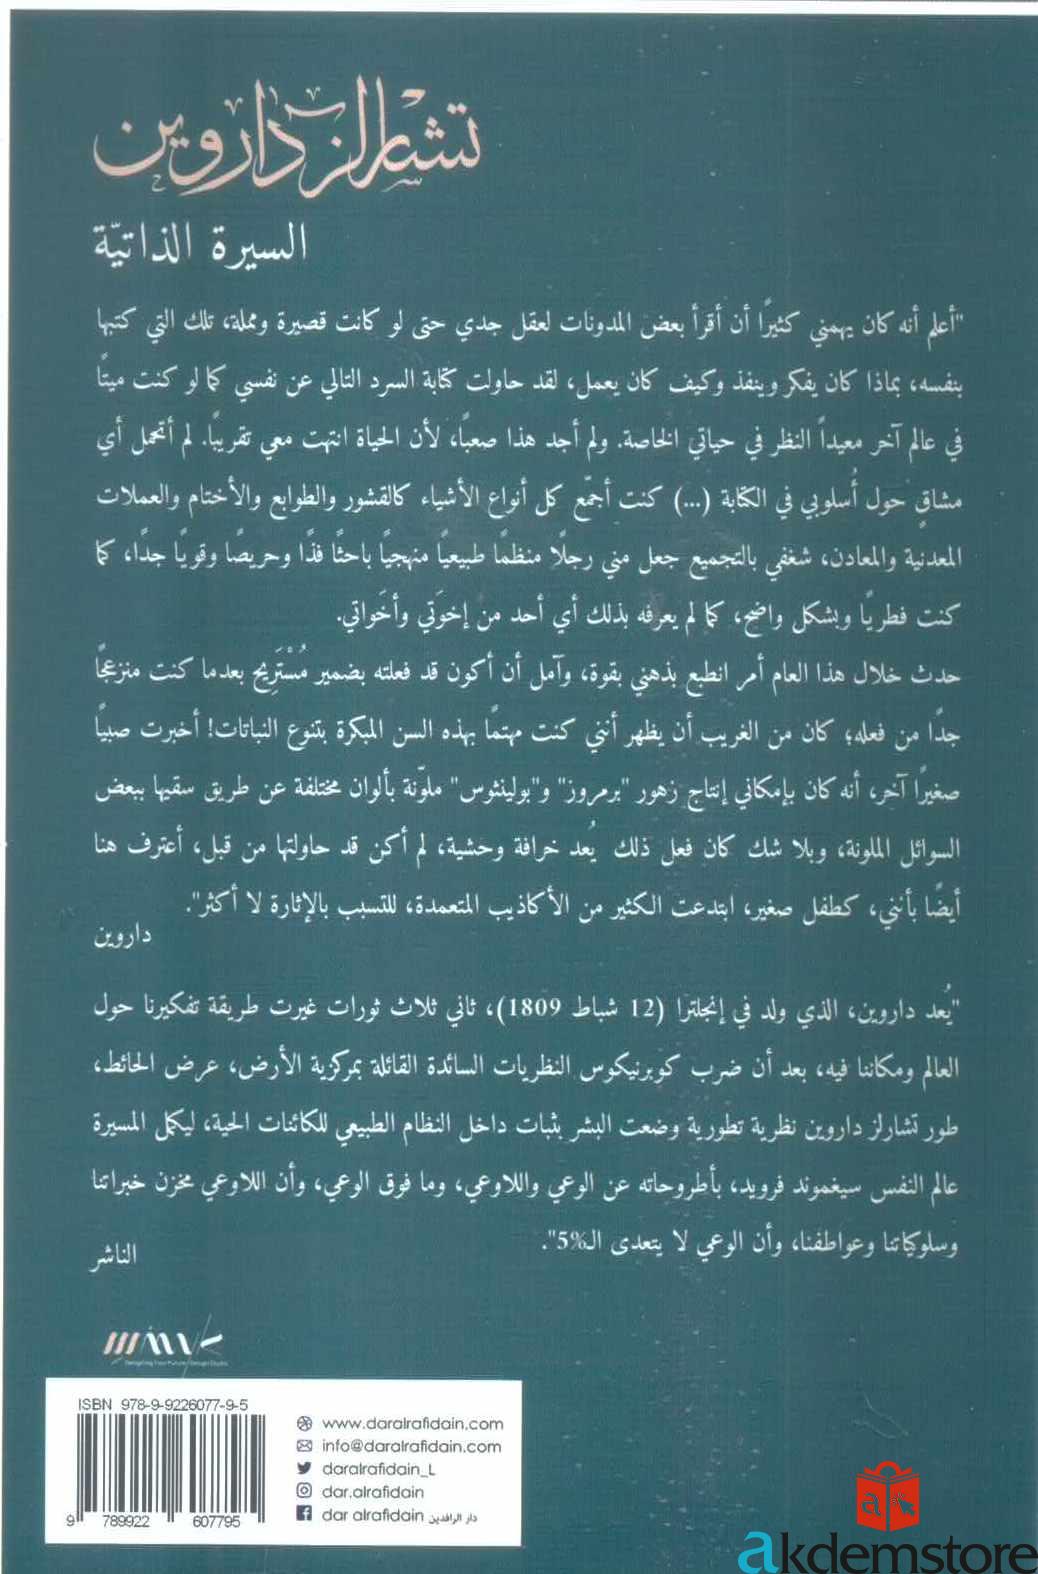 تشارلز داروين
السيرة الذاتيّة
"أعلم أنه كان يهمني كثيرًا أن أقرأ بعض المدونات لعقل جدي حتى لو كانت قصيرة ومملة، تلك التي كتبها
بنفسه، بماذا كان يفكر وينفذ وكيف كان يعمل، لقد حاولت كتابة السرد التالي عن نفسي كما لو كنت ميتًا
في عالم آخر معيداً النظر في حياتي الخاصة. ولم أجد هذا صعبًا، لأن الحياة انتهت معي تقريبًا. لم أتحمل أي
مشاقٍ حول أُسلوبي في الكتابة (...) كنت أجمّع كل أنواع الأشياء كالقشور والطوابع والأختام والعملات
المعدنية والمعادن، شغفي بالتجميع جعل مني رجلًا منظمًا طبيعيًا منهجيًا باحثًا فذًا وحريصًا وقويًا جدًا، كما
كنت فطريًا وبشكل واضح، كما لم يعرفه بذلك أي أحد من إخوَتي وأخَواتي.
حدث خلال هذا العام أمر انطبع بذهني بقوة، وآمل أن أكون قد فعلته بضمير مُسْتَرِيح بعدما كنت منزعجًا
جدًا من فعله؛ كان من الغريب أن يظهر أنني كنت مهتمًا بهذه السن المبكرة بتنوع النباتات! أخبرت صبيًا
صغيرًا آخر، أنه كان بإمكاني إنتاج زهور "برمروز" و"بولينثوس" ملوّنة بألوان مختلفة عن طريق سقيها ببعض
السوائل الملونة، وبلا شك كان فعل ذلك يُعد خرافة وحشية، لم أكن قد حاولتها من قبل، أعترف هنا
أيضًا بأنني، كطفل صغير، ابتدعت الكثير من الأكاذيب المتعمدة، للتسبب بالإثارة لا أكثر".
داروين
"يُعد داروين، الذي ولد في إنجلترا (12 شباط 1809)، ثاني ثلاث ثورات غيرت طريقة تفكيرنا حول
العالم ومكاننا فيه، بعد أن ضرب كوبرنيكوس النظريات السائدة القائلة بمركزية الأرض، عرض الحائط،
طور تشارلز داروين نظرية تطورية وضعت البشر بثبات داخل النظام الطبيعي للكائنات الحية، ليكمل المسيرة
عالم النفس سيغموند فرويد، بأطروحاته عن الوعي واللاوعي، وما فوق الوعي، وأن اللاوعي مخزن خبراتنا
وسلوكياتنا وعواطفنا، وأن الوعي لا يتعدى الـ5%".
الناشر
ISBN 978-9-9226077-9-5
9 789922 607795
www.daralrafidain.com
info@daralrafidain.com
daralrafidain_L
dar.alrafidain
dar alrafidain دار الرافدين
a
akdemstore